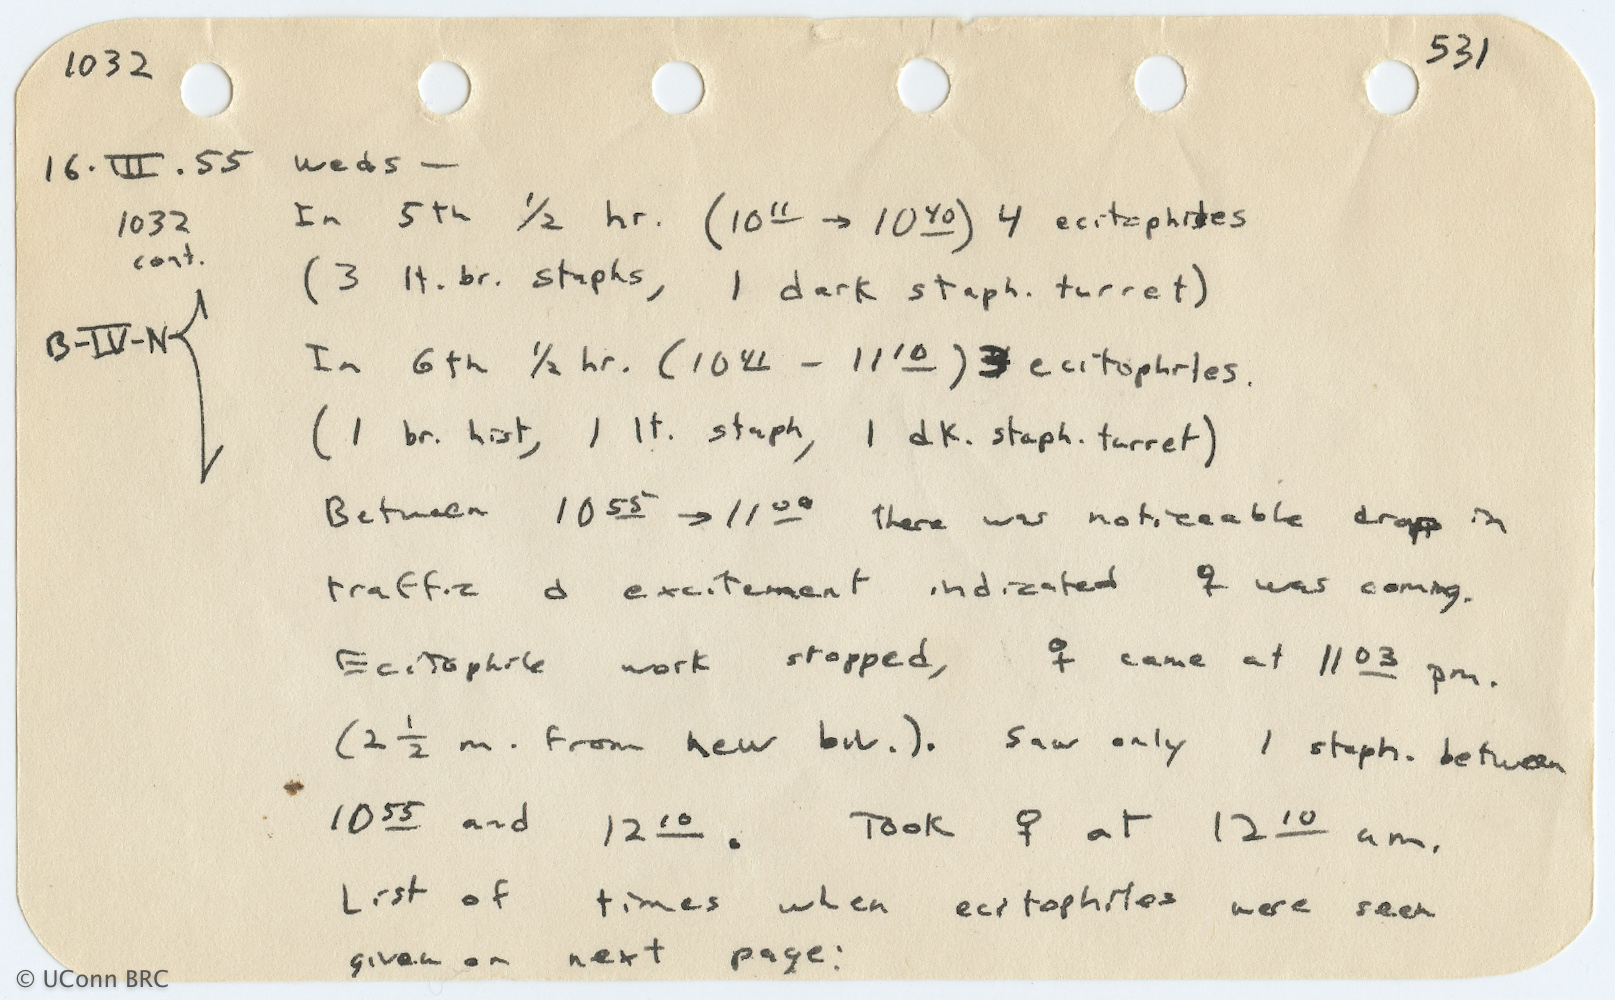 1032
531
16.III.55 Weds —
1032
cont.
B-IV-N
In 5th 1/2 hr. (10 11 → 10 40) 4 ecitophiles
(3 lt. br. staphs, 1 dark staph. turret)
In 6th 1/2 hr. (10 41 - 11 10) 3 ecitophiles.
(1 br. hist, 1 lt. staph, 1 dk. staph. turret)
Between 10 55 → 11 00 there was noticeable drop in
traffic & excitement indicated ♀ was coming.
Ecitophile work stopped, ♀ came at 11 03 pm.
(2 1/2 m. from new biv.). Saw only 1 staph. between
10 55 and 12 10. Took ♀ at 12 10 am.
List of times when ecitophiles were seen
given on next page:
© UConn BRC